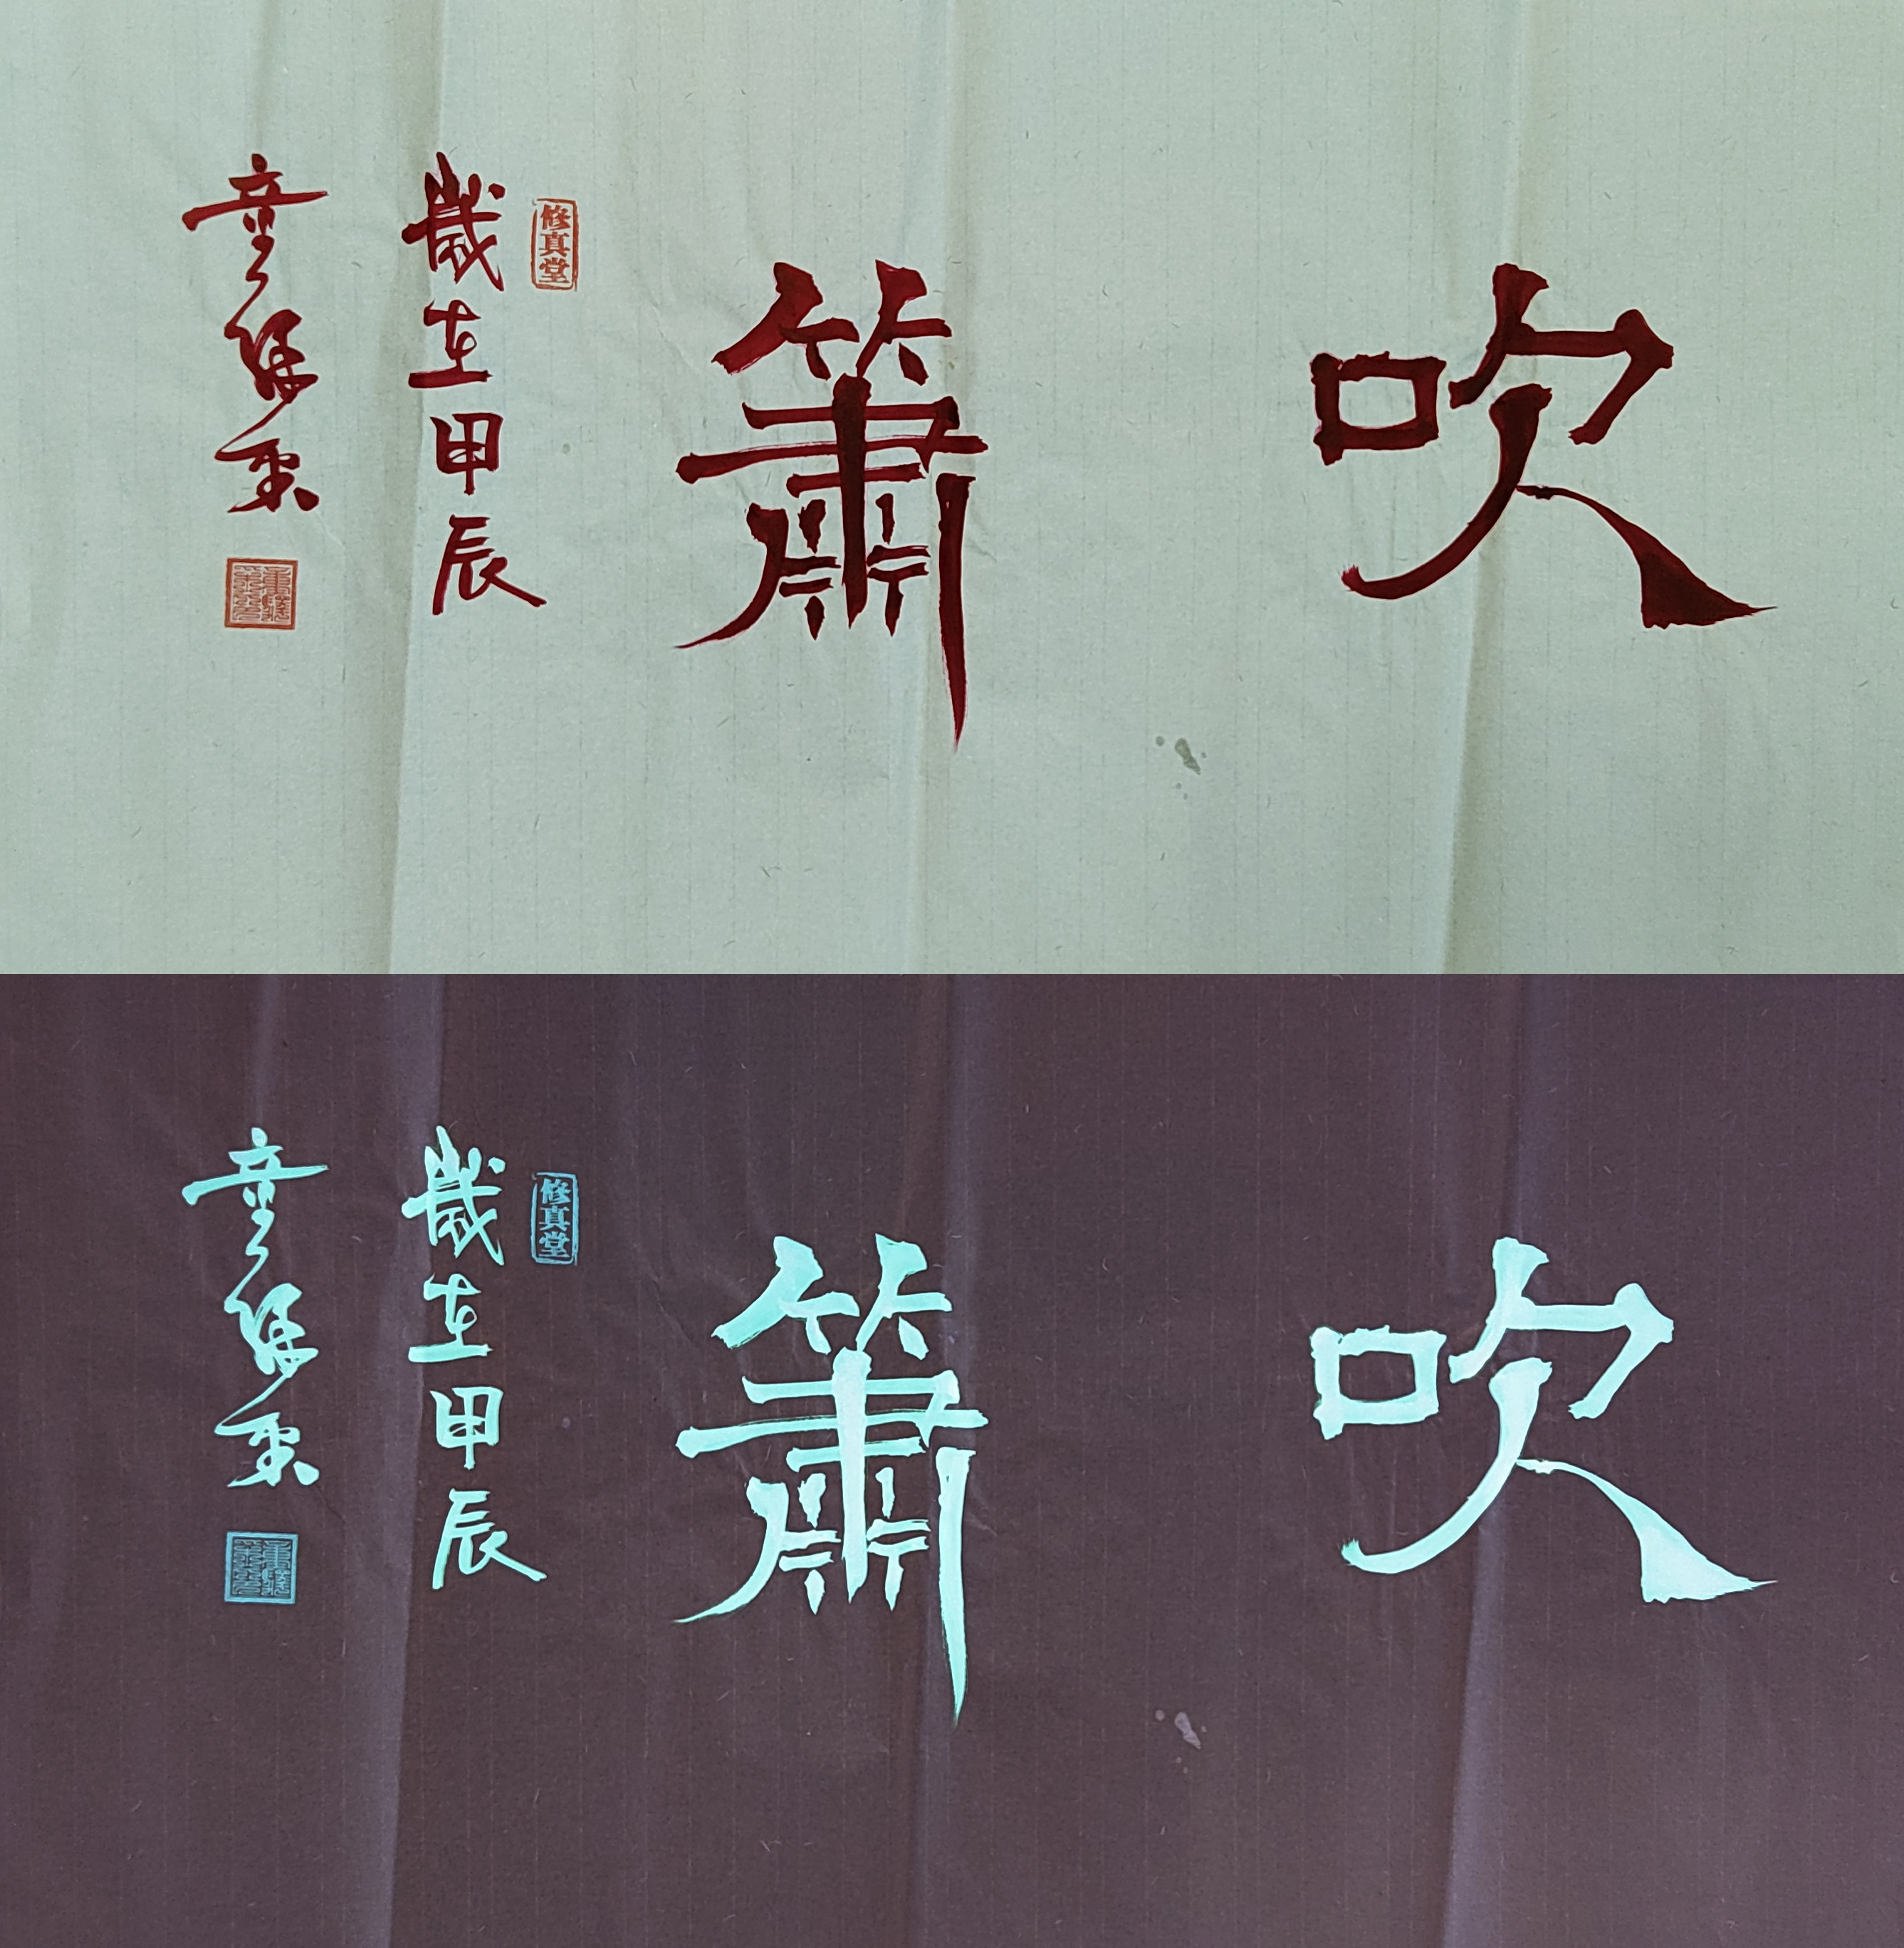 吹簫
修真堂
歲在甲辰
童
吹簫
修真堂
歲在甲辰
童